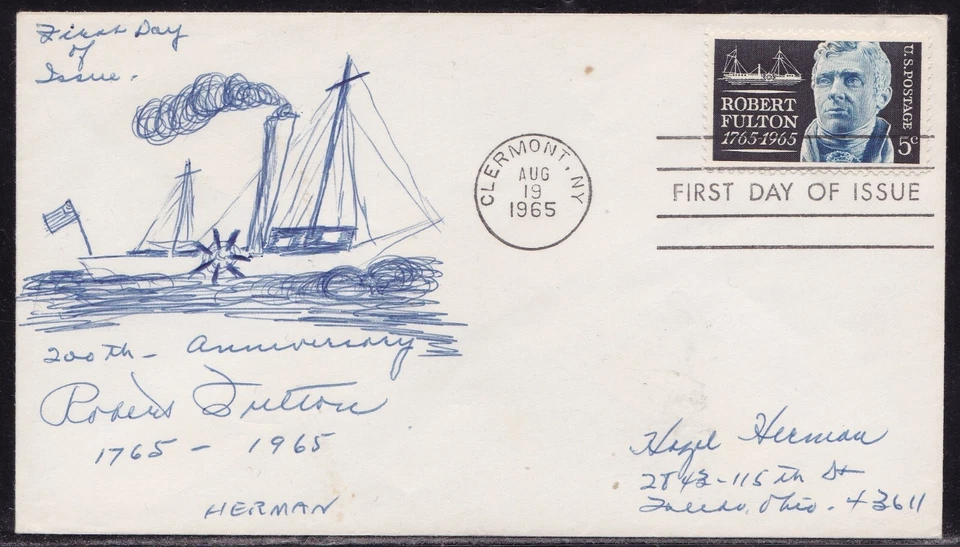 First Day
of
Issue.
ROBERT
FULTON
1765-1965
U.S. POSTAGE
5c
CLERMONT, NY
AUG
19
1965
FIRST DAY OF ISSUE
200th - Anniversary
Robert Fulton
1765 - 1965
HERMAN
Hazel Herman
2843-115th St
Toledo, Ohio. 43611